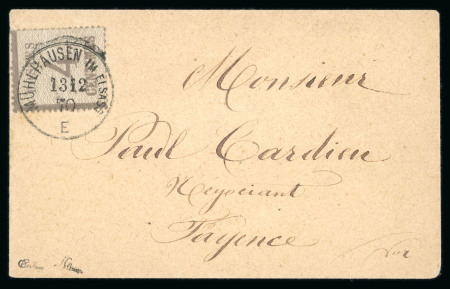 MÜHLHAUSEN IM ELSASS
13 12
70
E
Monsieur
Paul Cardieu
Negociant
Fayence
Var